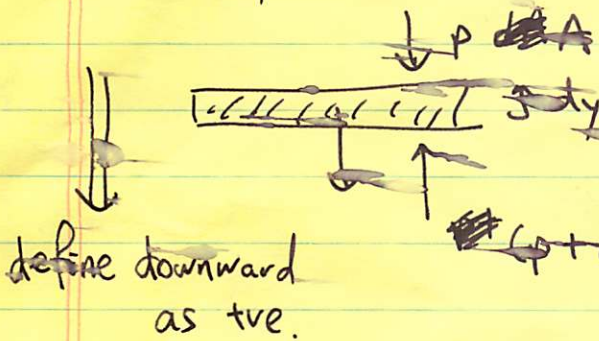 P A
dy
(p +
define downward
as +ve.